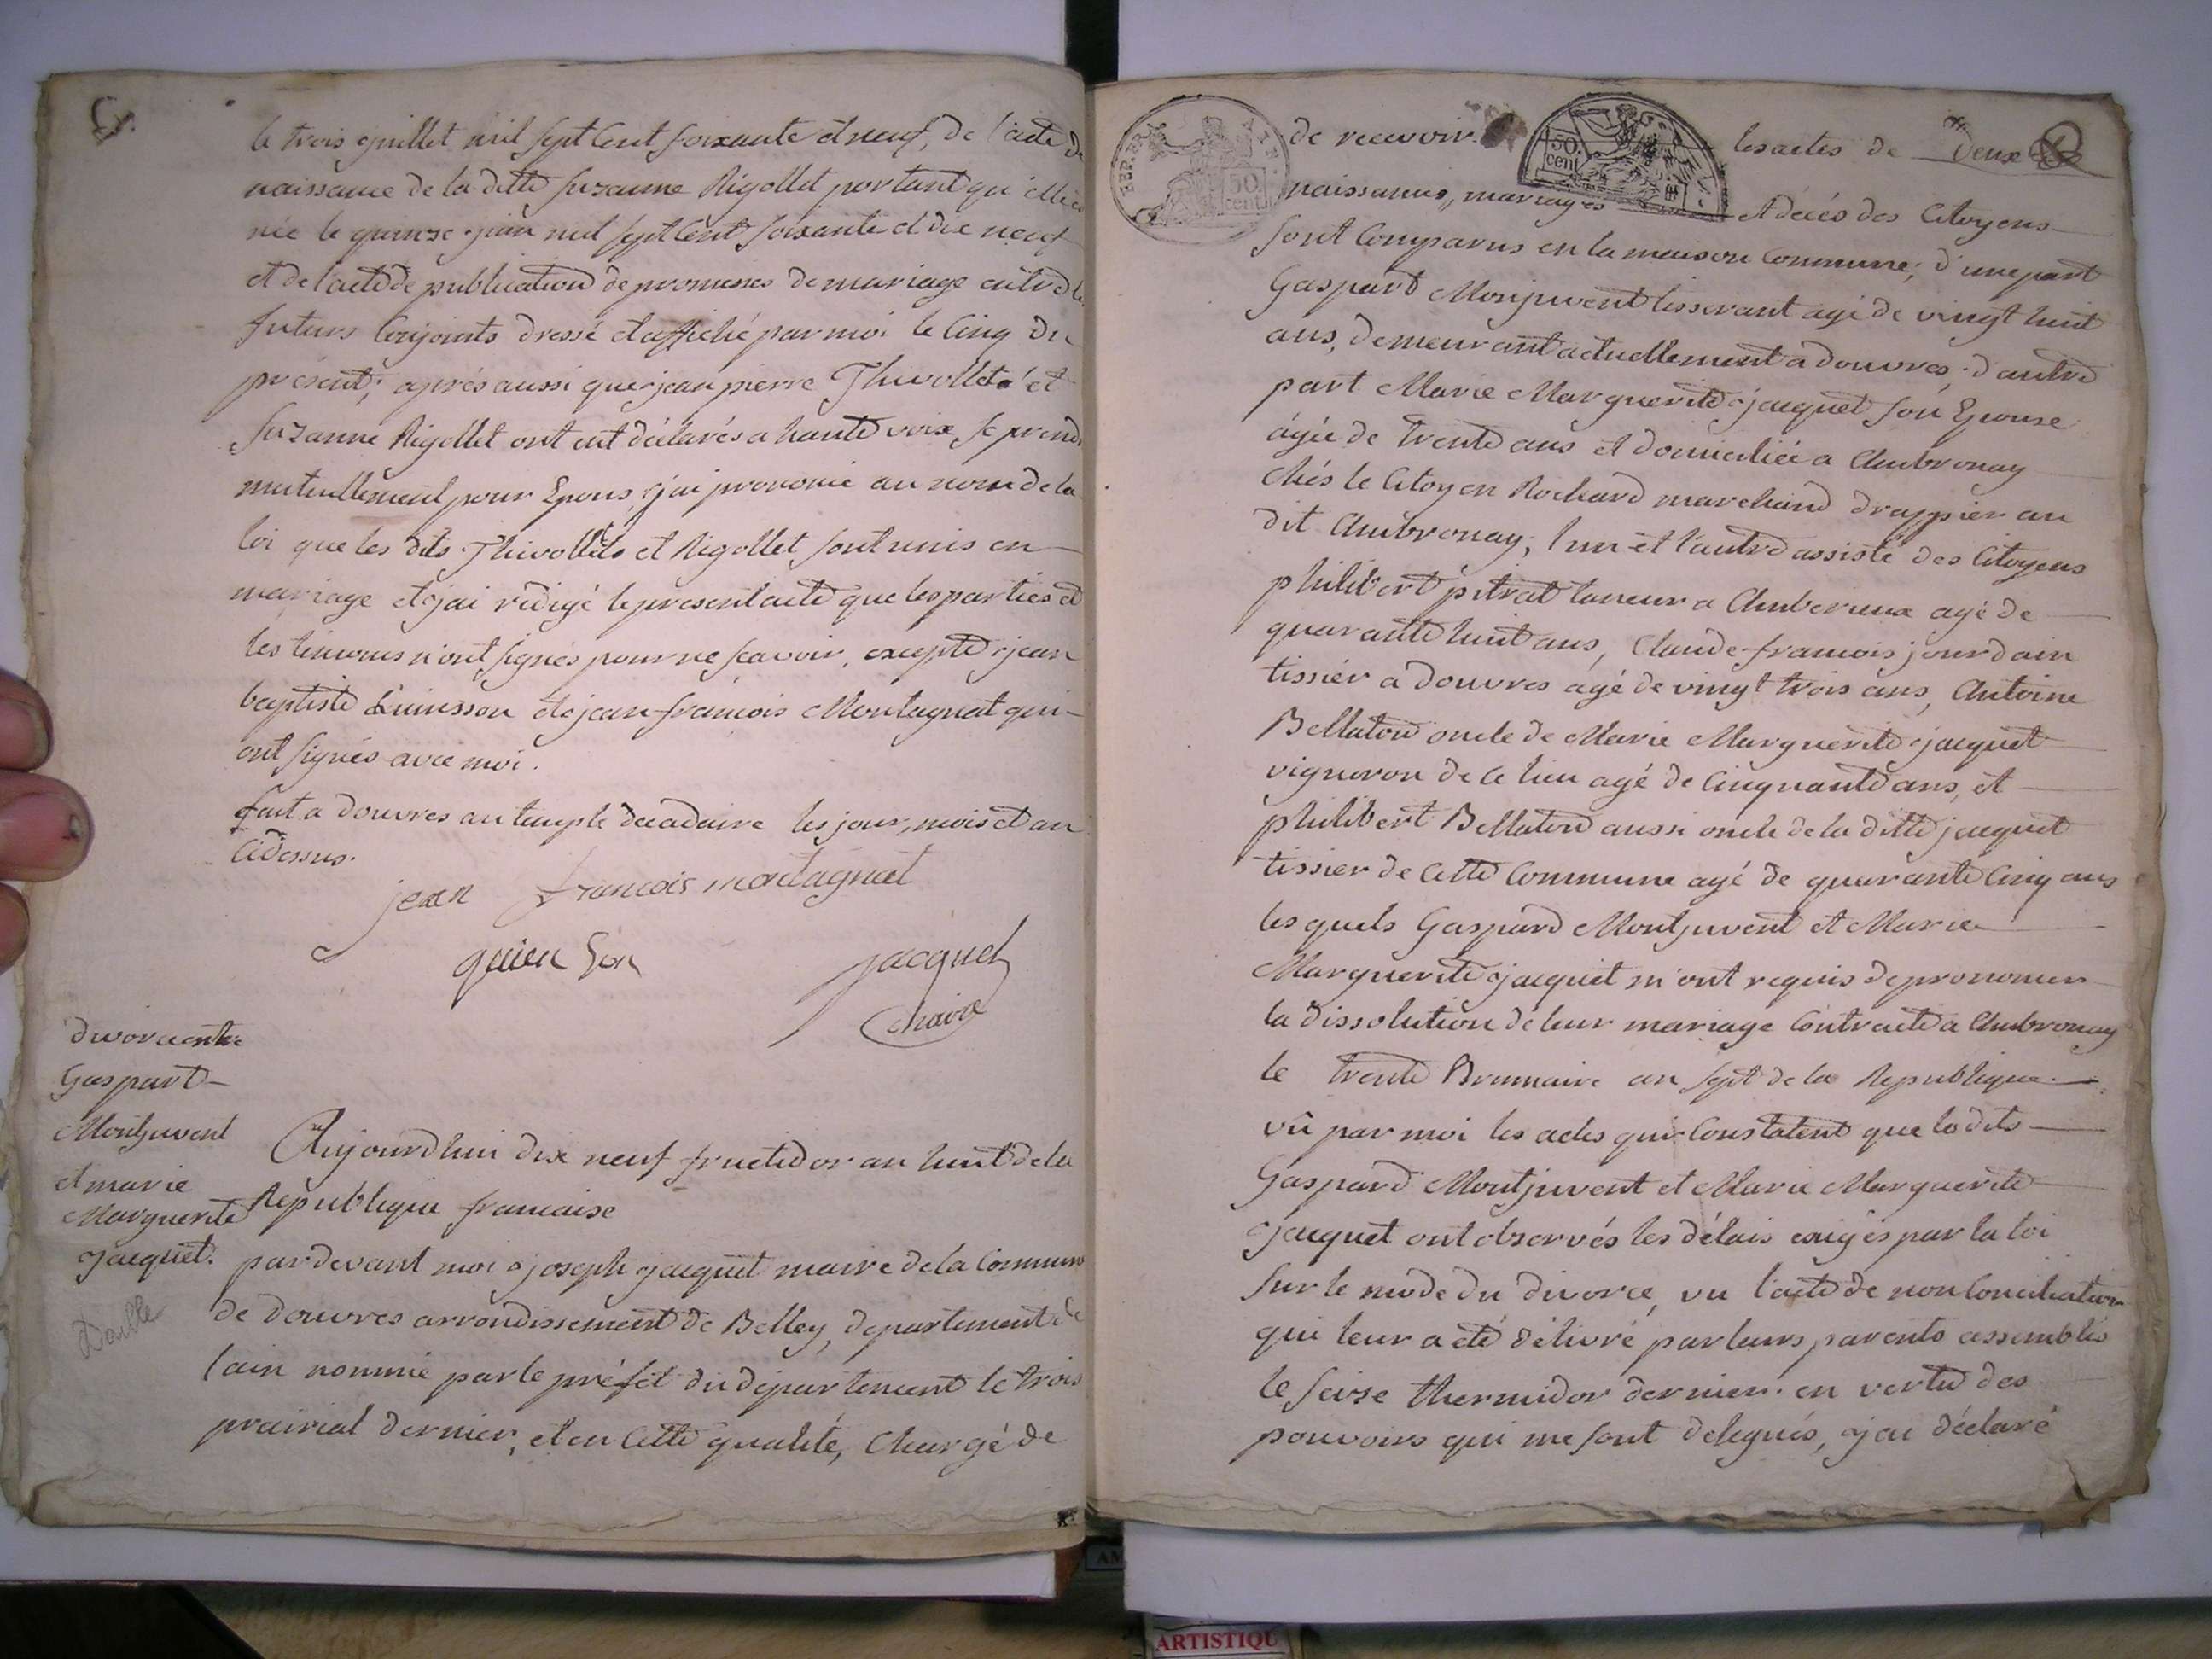 le trois juillet mil sept Cent soixante et neuf, de l'acte de
naissance de la ditte Suzanne Rigollet portant qu'elle est
née le quinze juin mil sept Cent soixante et dix neuf
et de l'acte de publication de promesses de mariage entre les
futurs Conjoints dressé et affiché par moi le Cinq du
présent; après aussi que jean pierre Thivollet et
Suzanne Rigollet ont eut déclarés a haute voix se prendre
mutuellement pour Epoux, j'ai prononcé au nom de la
loi que les dits Thivollet et Rigollet sont unis en
mariage et j'ai rédigé le present acte que les parties et
les temoins n'ont signés pour ne scavoir, excepté jean
baptiste Quinsson et jean françois Montagnat qui
ont signés avec moi.
fait a Douvres au temple decadaire les jour, mois et an
Cidessus.
jean francois montagnat
quien Son
jacquet
maire
divorce entre
Gaspart
Montjuvent
et marie
Marguerite
jacquet.
Double
Aujourdhui dix neuf fructidor an huit de la
Republique francaise
pardevant moi joseph jacquet maire de la Commune
de Douvres arrondissement de Belley, departement de
l'ain nommé par le préfet du département le trois
prairial dernier, et en Cette qualité, Chargé de
REP. FRA
50 cent
50. cent
de recevoir les actes de deux
naissances, mariages et décés des Citoyens
sont Comparus en la maison Commune; d'une part
Gaspard Monjuvent tisserant agé de vingt huit
ans, demeurant actuellement a douvres; d'autre
part Marie Marguerite jacquet son Epouse
agée de trente ans et domiciliée a Ambronay
chés le Citoyen Rochard marchand drappier au
dit Ambronay; l'un et l'autre assisté des Citoyens
philibert pitrat tanneur a Amberieux agé de
quarante huit ans, Claude francois jourdain
tissier a Douvres agé de vingt trois ans, Antoine
Bellaton oncle de Marie Marguerite jacquet
vigneron de ce lieu agé de Cinquante ans, et
philibert Bellaton aussi oncle de la ditte jacquet
tissier de Cette Commune agé de quarante Cinq ans
lesquels Gaspard Montjuvent et Marie
Marguerite jacquet m'ont requis de prononcer
la dissolution de leur mariage Contracté a Ambronay
le trente Brumaire an sept de la Republique.
vû par moi les actes qui Constatent que lesdits
Gaspard Montjuvent et Marie Marguerite
jacquet ont observés les délais exigés par la loi
sur le mode du divorce, vu l'acte de non Conciliation
qui leur a été délivré par leurs parents assemblés
le seize thermidor dernier. en vertu des
pouvoirs qui me sont delegués, j'ai déclaré
ARTISTIQU